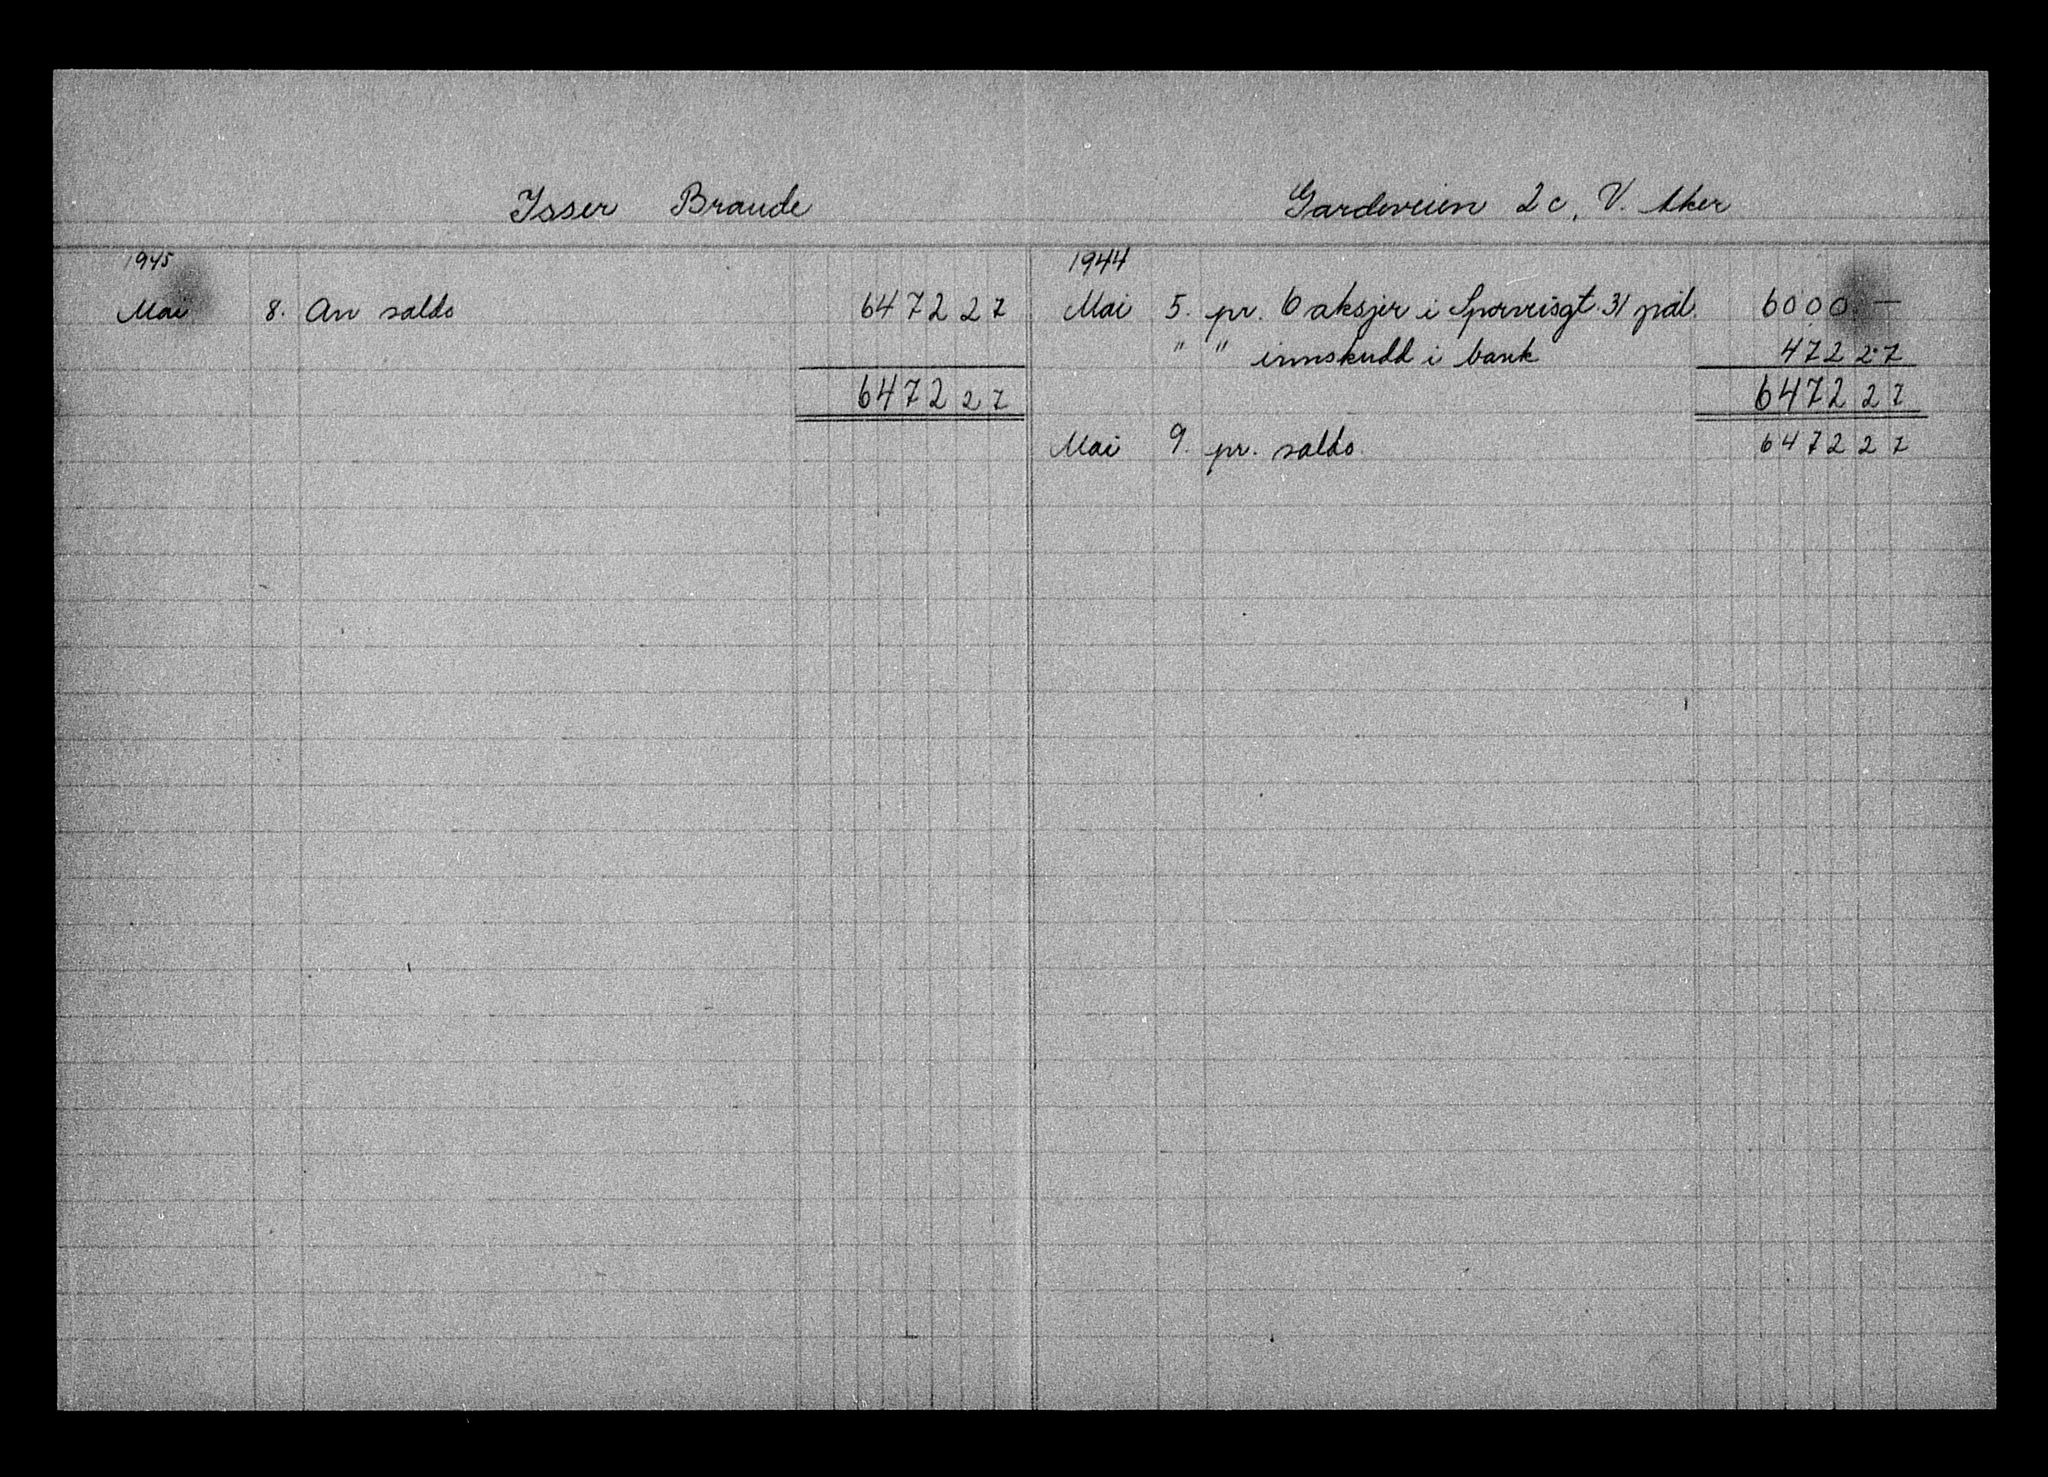 Isser Braude
Gardeveien 2c, V. Aker
1945
Mai 8. An saldo 6472 27
6472 27
1944
Mai 5. pr. 6 aksjer i Sporveisgt. 31 pål. 6000 —
" " innskudd i bank 472 27
6472 27
Mai 9. pr. saldo 6472 27